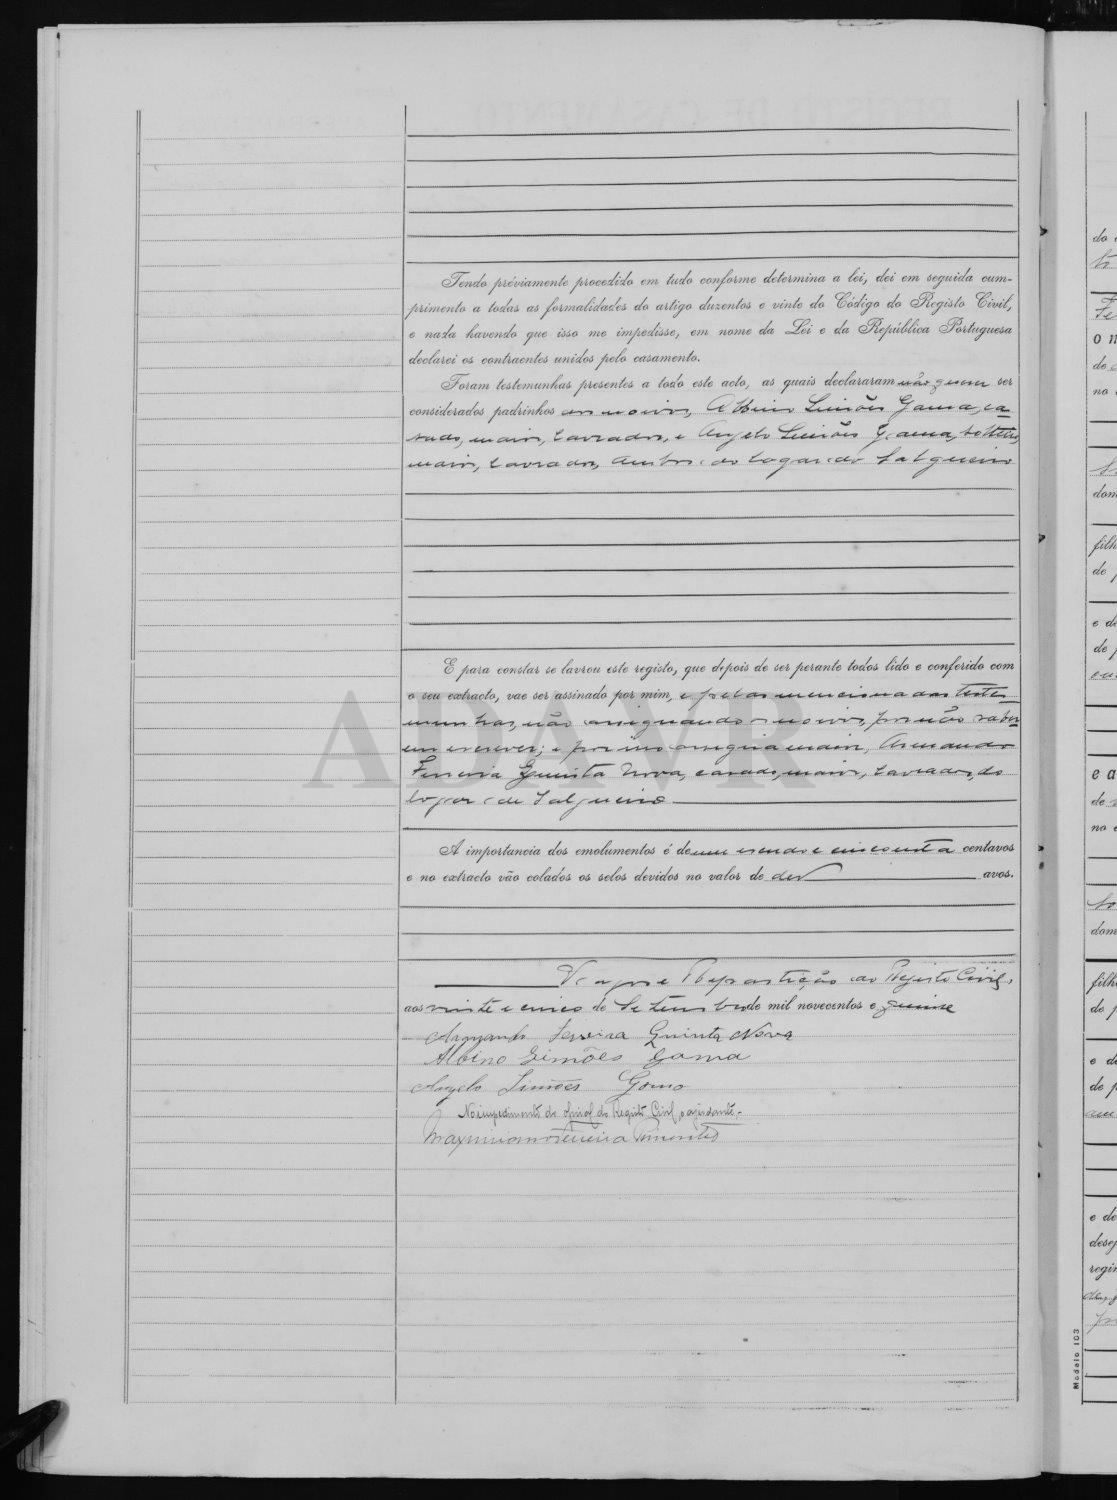 Tendo préviamente procedido em tudo conforme determina a lei, dei em seguida cum-
primento a todas as formalidades do artigo duzentos e vinte do Código do Registo Civil,
e nada havendo que isso me impedisse, em nome da Lei e da República Portuguesa
declarei os contraentes unidos pelo casamento.
Foram testemunhas presentes a todo este acto, as quais declararam não querer ser
considerados padrinhos dos noivos, Albino Simões Gama, ca-
sado, maior, lavrador, e Angelo Simões Gama, solteiro,
maior, lavrador, ambos do logar do Salgueiro
E para constar se lavrou este registo, que depois de ser perante todos lido e conferido com
o seu extracto, vae ser assinado por mim, e pelas mencionadas teste-
munhas, não assignando os noivos, por não sabe-
rem escrever; e por isso assigna mais, Armando
Ferreira Quinta Nova, casado, maior, lavrador, do
logar de Salgueiro
A importancia dos emolumentos é de um escudo e cincoenta centavos
e no extracto vão colados os selos devidos no valor de dez avos.
Vagos e Repartição do Registo Civil,
aos vinte e cinco de Setembro de mil novecentos e quinze
Armando Ferreira Quinta Nova
Albino Simões Gama
Angelo Simões Gama
No impedimento do oficial do Registo Civil, o ajudante-
Maximiano Ferreira Pimentel
ADAVR
do
filh
de
no
dom
e de
de p
o n
e a
regi
Modelo 103